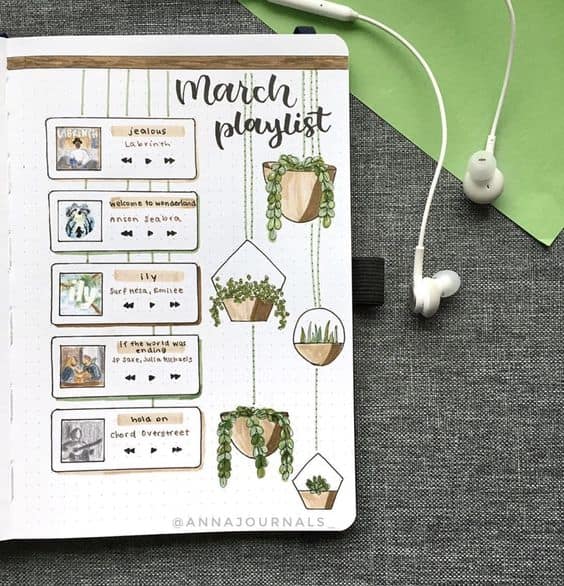 March
playlist
LABRINTH
jealous
Labrinth
welcome to wonderland
Anson Seabra
ily
ily
Surf Mesa, Emilee
if the world was
ending
JP Saxe, Julia Michaels
hold on
Chord Overstreet
@ANNAJOURNALS_